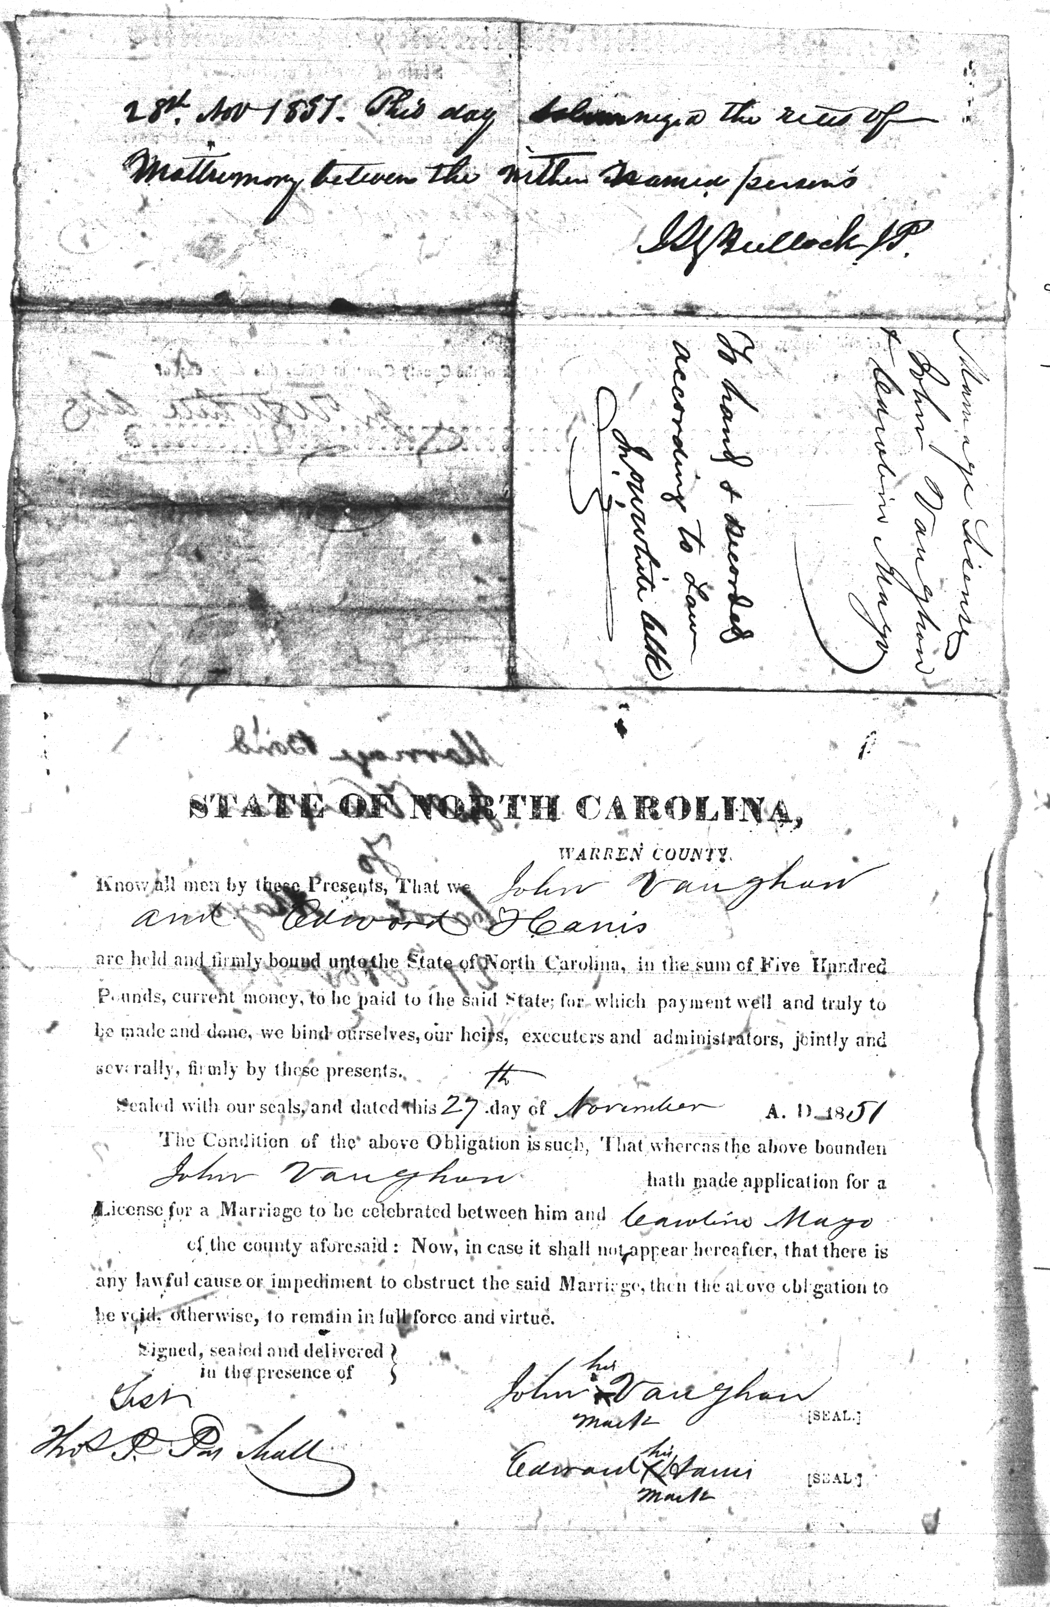 28th. Nov 1851. This day solemnized the rites of
Matrimony between the within named persons
Bullock JP.
Marriage License
John Vaughan
& Caroline Mayo
To hand & recorded
according to Law
Jn. W. White Clk
Marriage Bond
To
STATE OF NORTH CAROLINA,
WARREN COUNTY.
Know all men by these Presents, That we John Vaughan
and Edward Harris
are held and firmly bound unto the State of North Carolina, in the sum of Five Hundred
Pounds, current money, to be paid to the said State; for which payment well and truly to
be made and done, we bind ourselves, our heirs, executers and administrators, jointly and
severally, firmly by these presents.
Sealed with our seals, and dated this 27th day of November A. D. 1851
The Condition of the above Obligation is such, That whereas the above bounden
John Vaughan hath made application for a
License for a Marriage to be celebrated between him and Caroline Mayo
of the county aforesaid: Now, in case it shall not appear hereafter, that there is
any lawful cause or impediment to obstruct the said Marriage, then the above obligation to
be void, otherwise, to remain in full force and virtue.
Signed, sealed and delivered }
in the presence of
Test
Thos P. Paschall
John his X mark Vaughan [SEAL.]
Edward his X mark Harris [SEAL.]